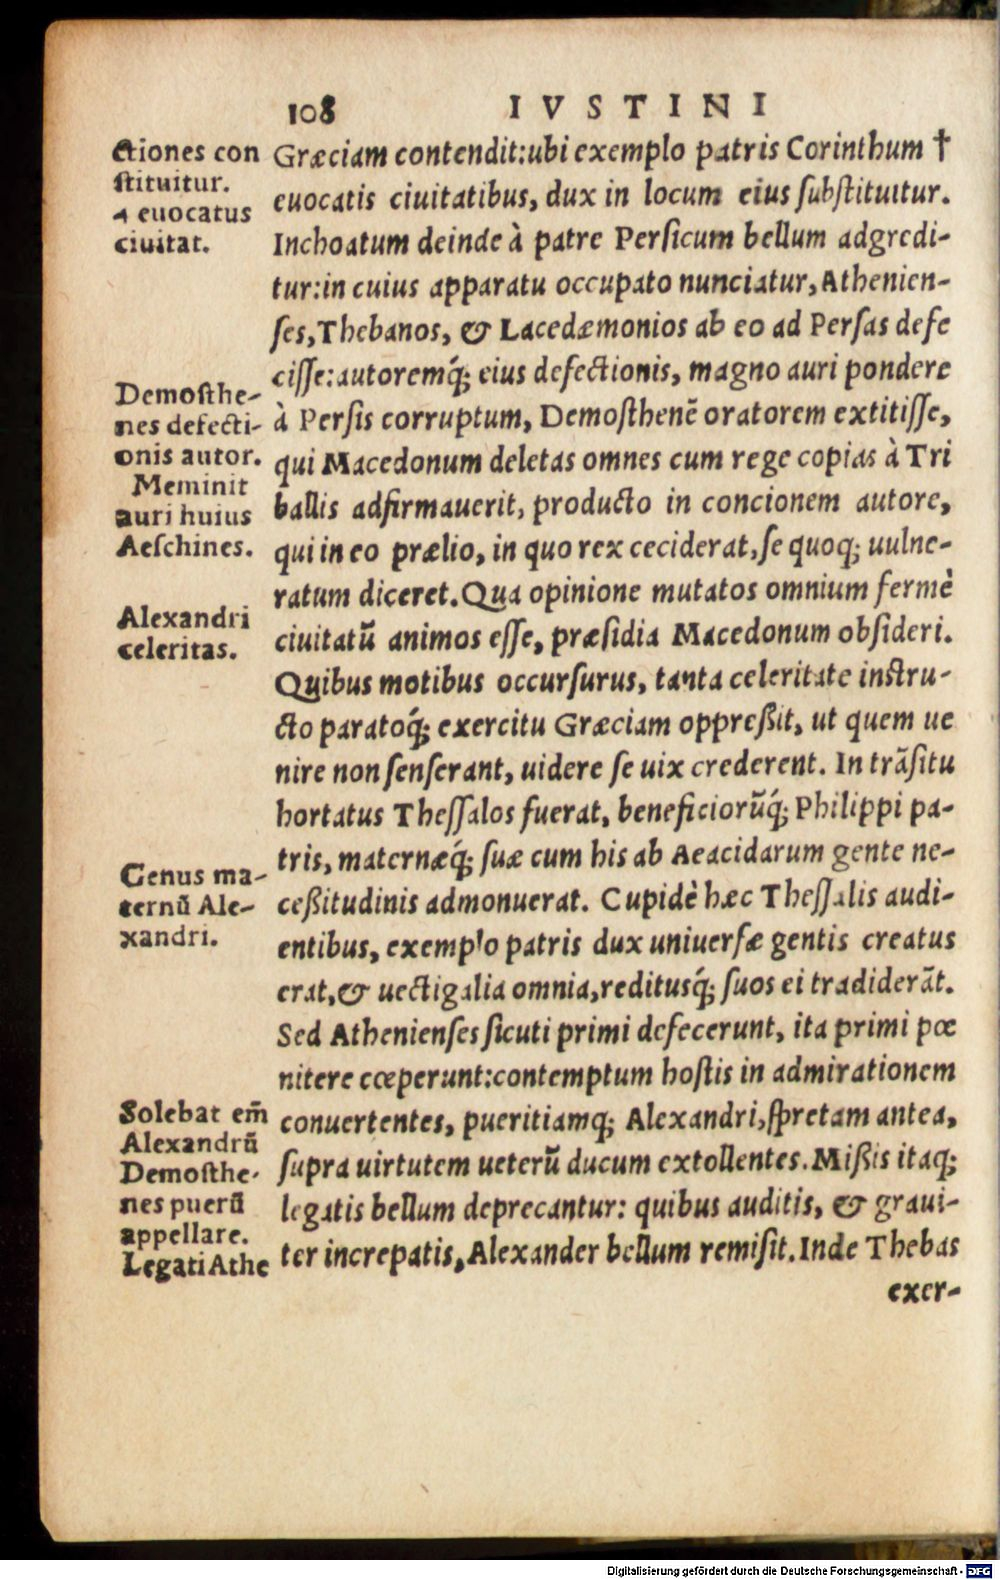 108 IVSTINI
ctiones con
stituitur.
4 euocatus
ciuitat.
Demosthe-
nes defecti-
onis autor.
Meminit
auri huius
Aeschines.
Alexandri
celeritas.
Genus ma-
ternũ Ale-
xandri.
Solebat em̃
Alexandrũ
Demosthe-
nes puerũ
appellare.
Legati Athe
Græciam contendit: ubi exemplo patris Corinthum †
euocatis ciuitatibus, dux in locum eius substituitur.
Inchoatum deinde à patre Persicum bellum adgredi-
tur: in cuius apparatu occupato nunciatur, Athenien-
ses, Thebanos, & Lacedæmonios ab eo ad Persas defe
cisse: autoremq́; eius defectionis, magno auri pondere
à Persis corruptum, Demosthenẽ oratorem extitisse,
qui Macedonum deletas omnes cum rege copias à Tri
ballis adfirmauerit, producto in concionem autore,
qui in eo prælio, in quo rex ceciderat, se quoq; uulne-
ratum diceret. Qua opinione mutatos omnium fermè
ciuitatũ animos esse, præsidia Macedonum obsideri.
Quibus motibus occursurus, tanta celeritate instru-
cto paratoq́; exercitu Græciam oppreßit, ut quem ue
nire non senserant, uidere se uix crederent. In trãsitu
hortatus Thessalos fuerat, beneficiorũq́; Philippi pa-
tris, maternæq́; suæ cum his ab Aeacidarum gente ne-
ceßitudinis admonuerat. Cupidè hæc Thessalis audi-
entibus, exemplo patris dux uniuersæ gentis creatus
erat, & uectigalia omnia, reditusq́; suos ei tradiderãt.
Sed Athenienses sicuti primi defecerunt, ita primi pœ
nitere cœperunt: contemptum hostis in admirationem
conuertentes, pueritiamq; Alexandri, spretam antea,
supra uirtutem ueterũ ducum extollentes. Mißis itaq;
legatis bellum deprecantur: quibus auditis, & graui-
ter increpatis, Alexander bellum remisit. Inde Thebas
exer-
Digitalisierung gefördert durch die Deutsche Forschungsgemeinschaft - DFG